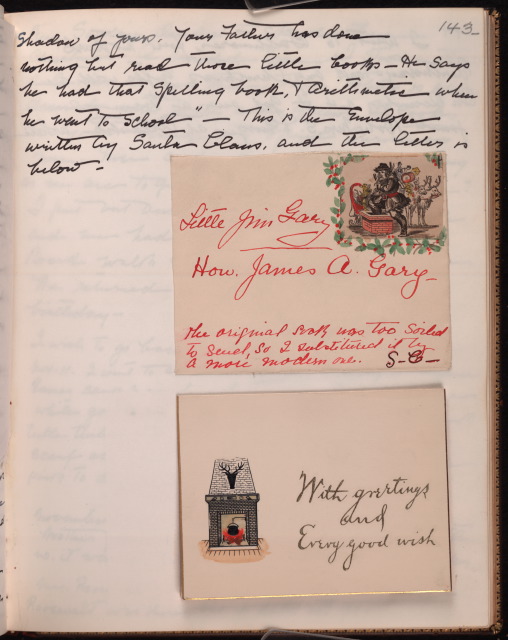 143
Shadow of yours. Your Father has done
nothing but read those little books — He says
he had that Spelling book, & Arithmetic when
he went to School" — This is the Envelope
written by Santa Claus, and the letter is
below —
Little Jim Gary
Hon. James A. Gary—
The original sock was too soiled
to send, so I substituted it by
a more modern one. S—C—
With greetings
and
Every good wish